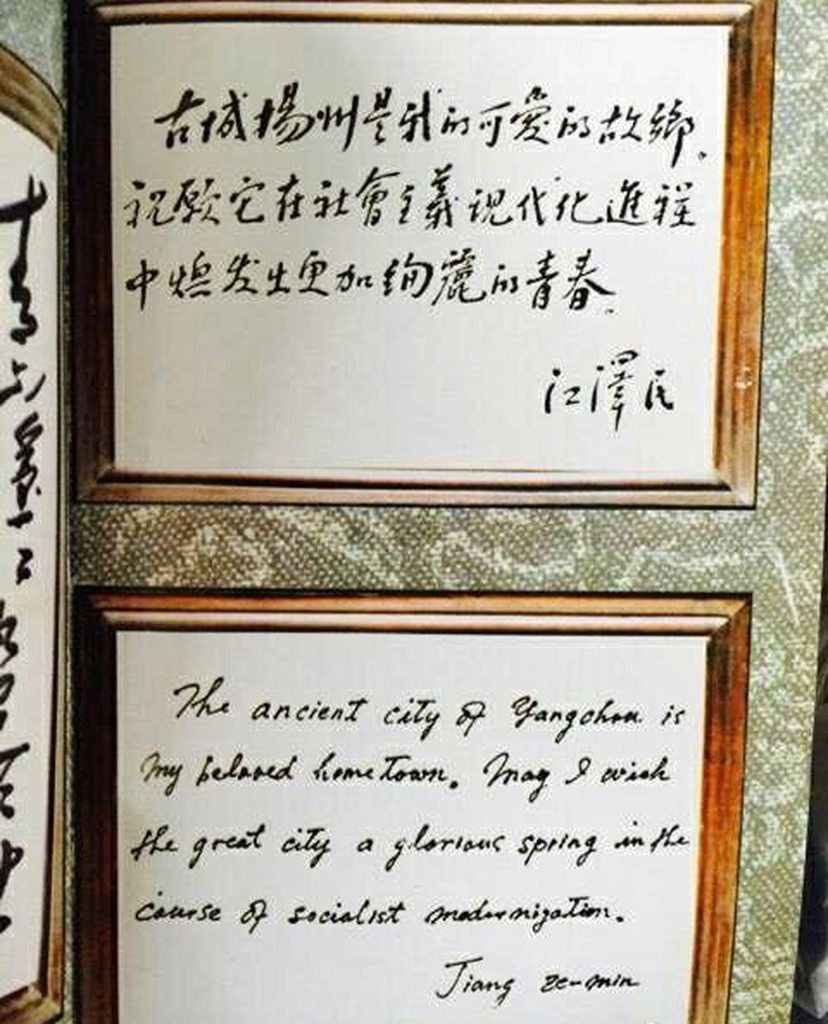 古城揚州是我的可愛的故鄉.
祝願它在社會主義現代化進程
中煥发出更加絢麗的青春.
江澤民
The ancient city of Yangchou is
my beloved home town. May I wish
the great city a glorious spring in the
course of socialist modernization.
Jiang Ze-min